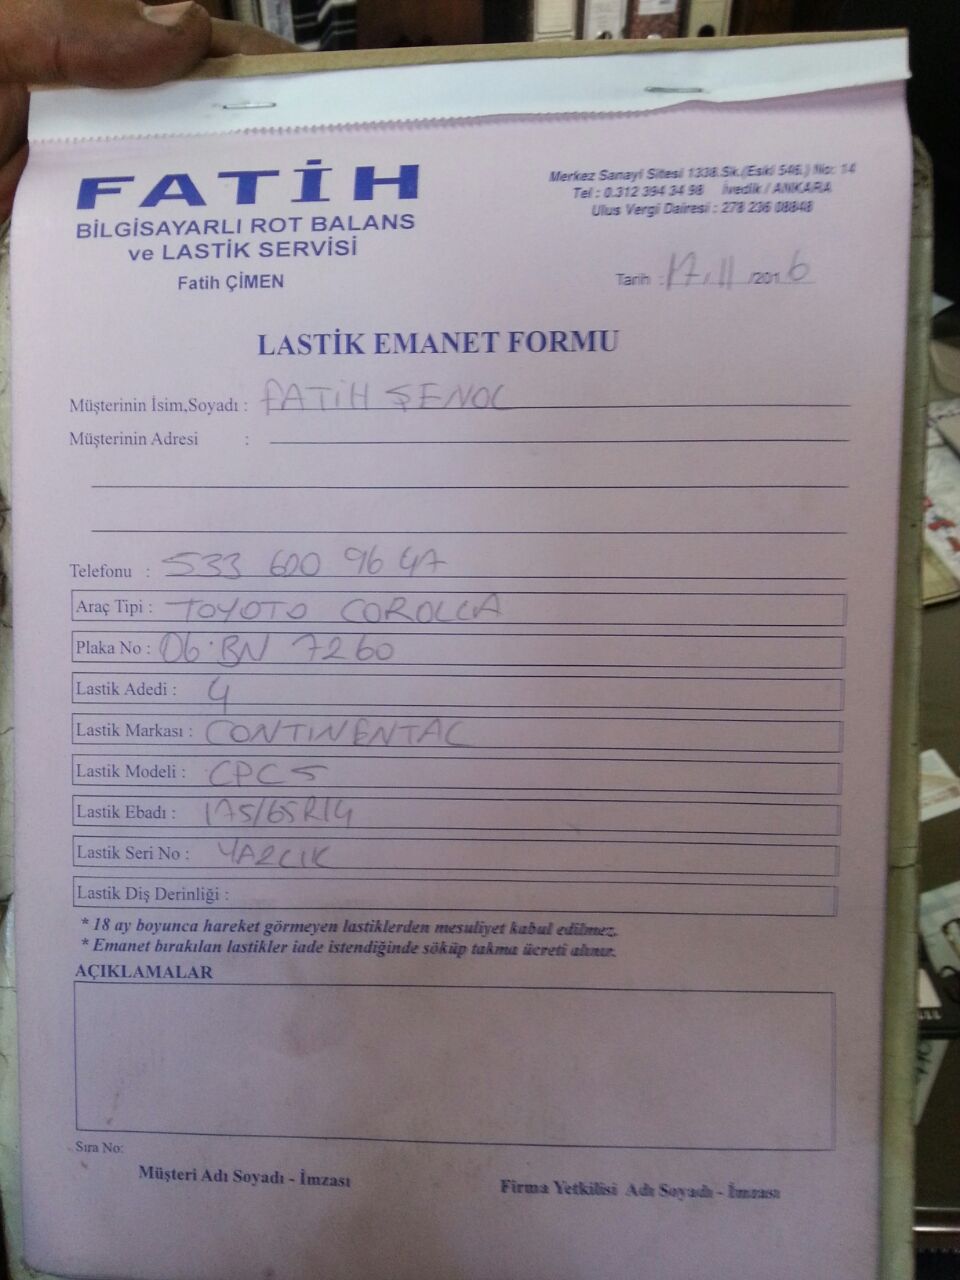 FATİH
BİLGİSAYARLI ROT BALANS
ve LASTİK SERVİSİ
Fatih ÇİMEN
Merkez Sanayi Sitesi 1338.Sk.(Eski 546.) No: 14
Tel : 0.312 394 34 98 İvedik / ANKARA
Ulus Vergi Dairesi : 278 236 08848
Tarih : 17.11/2016
LASTİK EMANET FORMU
Müşterinin İsim,Soyadı : FATİH ŞENOL
Müşterinin Adresi :
Telefonu : 533 600 96 47
Araç Tipi : TOYOTO COROLLA
Plaka No : 06 BN 7260
Lastik Adedi : 4
Lastik Markası : CONTINENTAL
Lastik Modeli : CPC 5
Lastik Ebadı : 175/65R14
Lastik Seri No : YAZLIK
Lastik Diş Derinliği :
* 18 ay boyunca hareket görmeyen lastiklerden mesuliyet kabul edilmez.
* Emanet bırakılan lastikler iade istendiğinde söküp takma ücreti alınır.
AÇIKLAMALAR
Sıra No:
Müşteri Adı Soyadı - İmzası
Firma Yetkilisi Adı Soyadı - İmzası